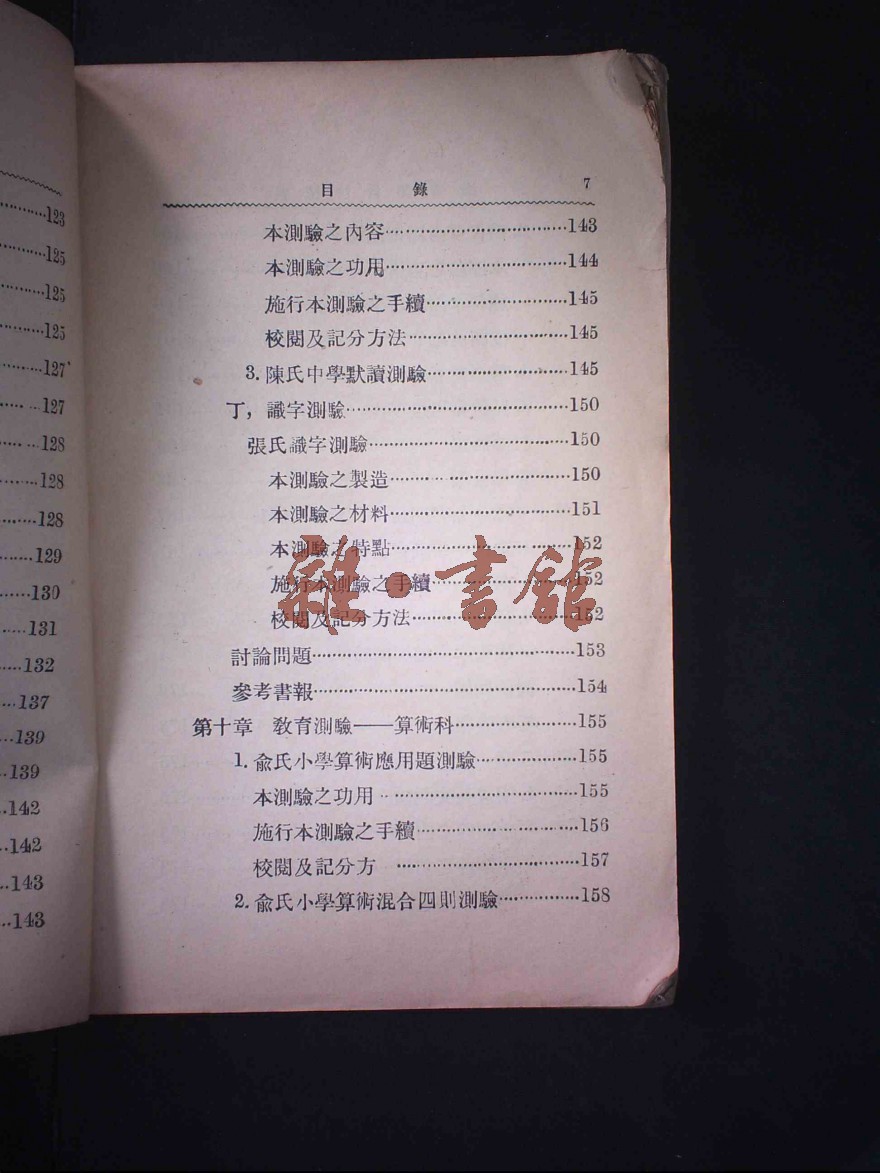 123
125
125
125
127
127
128
128
128
129
130
131
132
137
139
139
142
142
143
143
目 錄 7
本測驗之內容……143
本測驗之功用……144
施行本測驗之手續……145
校閱及記分方法……145
3. 陳氏中學默讀測驗……145
丁，識字測驗……150
張氏識字測驗……150
本測驗之製造……150
本測驗之材料……151
本測驗之特點……152
施行本測驗之手續……152
校閱及記分方法……152
雜·書館
討論問題……153
參考書報……154
第十章 教育測驗——算術科……155
1. 俞氏小學算術應用題測驗……155
本測驗之功用……155
施行本測驗之手續……156
校閱及記分方 ……157
2. 俞氏小學算術混合四則測驗……158